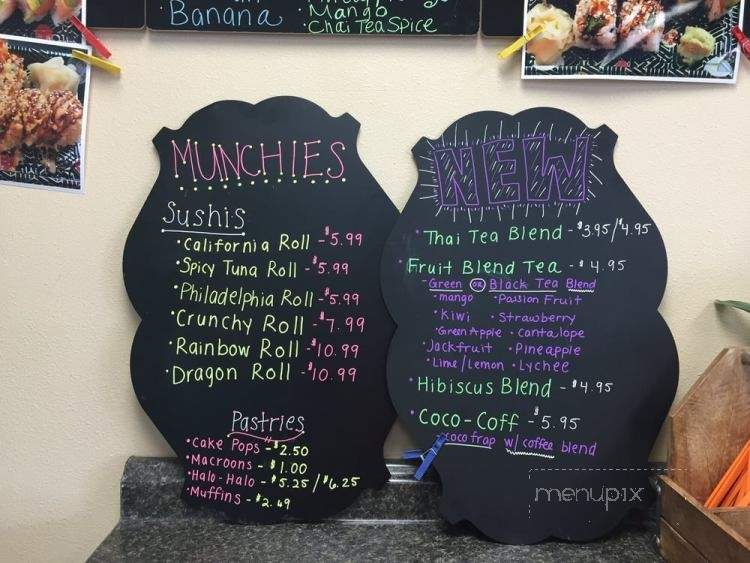 Banana
Mango
Chai Tea Spice
MUNCHIES
Sushis
•California Roll - $5.99
•Spicy Tuna Roll - $5.99
•Philadelphia Roll - $5.99
•Crunchy Roll - $7.99
•Rainbow Roll - $10.99
•Dragon Roll - $10.99
Pastries
•Cake Pops - $2.50
•Macroons - $1.00
•Halo-Halo - $5.25/$6.25
•Muffins - $2.49
NEW
•Thai Tea Blend - $3.95/$4.95
•Fruit Blend Tea - $4.95
- Green OR Black Tea Blend
•mango •Passion Fruit
•Kiwi •Strawberry
•Green Apple •Cantalope
•Jackfruit •Pineapple
•Lime/Lemon •Lychee
•Hibiscus Blend - $4.95
•Coco-Coff - $5.95
coco frap w/ coffee blend
menupix